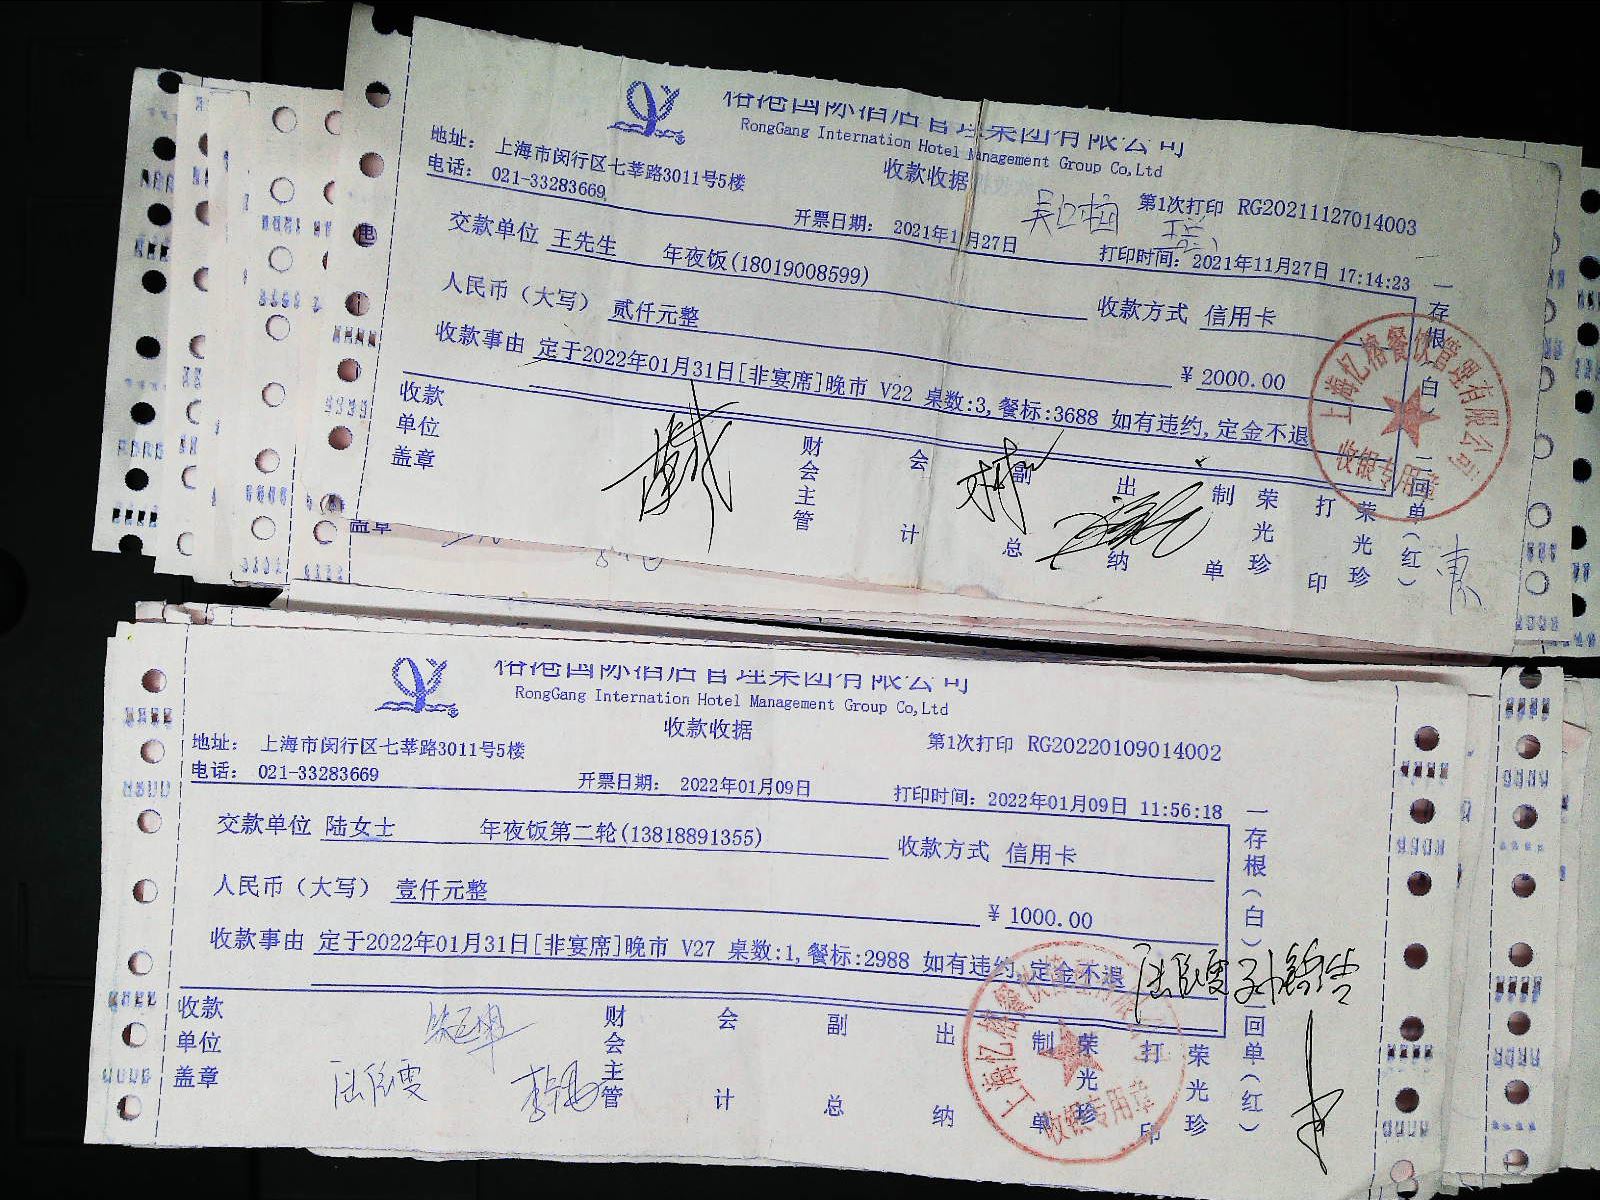 榕港国际酒店管理集团有限公司
RongGang Internation Hotel Management Group Co,Ltd
收款收据
地址: 上海市闵行区七莘路3011号5楼
电话: 021-33283669
第1次打印 RG20211127014003
开票日期: 2021年11月27日
打印时间: 2021年11月27日 17:14:23
交款单位 王先生 年夜饭(18019008599)
收款方式 信用卡
人民币(大写) 贰仟元整
¥ 2000.00
收款事由 定于2022年01月31日[非宴席]晚市 V22 桌数:3,餐标:3688 如有违约,定金不退
收款单位盖章
财会主管
会计
副总
出纳
制单
荣光珍
打印
荣光珍
一存根(白)二回单(红)
上海忆榕餐饮管理有限公司
收银专用章
盖章
榕港国际酒店管理集团有限公司
RongGang Internation Hotel Management Group Co,Ltd
收款收据
地址: 上海市闵行区七莘路3011号5楼
电话: 021-33283669
第1次打印 RG20220109014002
开票日期: 2022年01月09日
打印时间: 2022年01月09日 11:56:18
交款单位 陆女士 年夜饭第二轮(13818891355)
收款方式 信用卡
人民币(大写) 壹仟元整
¥ 1000.00
收款事由 定于2022年01月31日[非宴席]晚市 V27 桌数:1,餐标:2988 如有违约,定金不退
收款单位盖章
财会主管
会计
副总
出纳
制单
荣光珍
打印
荣光珍
一存根(白)二回单(红)
上海忆榕餐饮管理有限公司
收银专用章